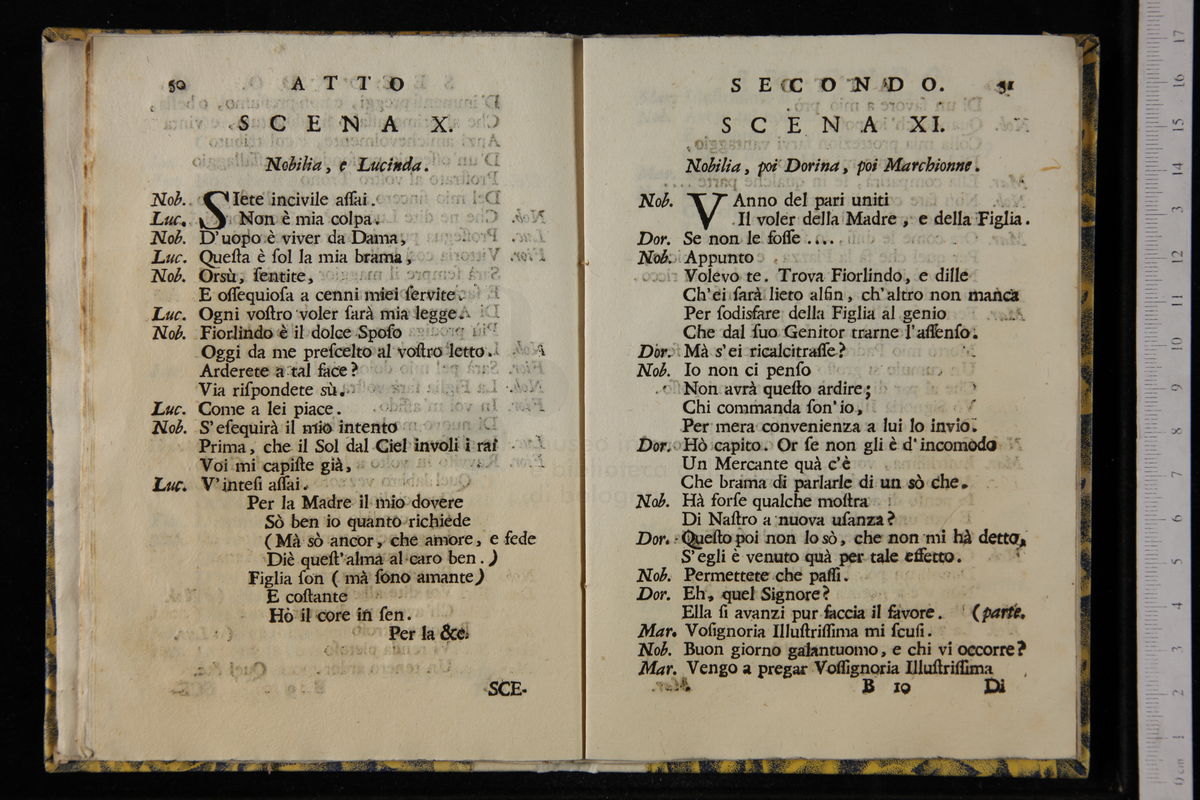 50 ATTO
SCENA X.
Nobilia, e Lucinda.
Nob. SIete incivile aſſai.
Luc. Non è mia colpa.
Nob. D'uopo è viver da Dama,
Luc. Queſta è ſol la mia brama,
Nob. Orsù, ſentite,
E oſſequioſa a cenni miei ſervite.
Luc. Ogni voſtro voler ſarà mia legge.
Nob. Fiorlindo è il dolce Spoſo
Oggi da me preſcelto al voſtro letto.
Arderete a tal face?
Via riſpondete sù.
Luc. Come a lei piace.
Nob. S'eſequirà il mio intento
Prima, che il Sol dal Ciel involi i rai
Voi mi capiſte già,
Luc. V'inteſi aſſai.
Per la Madre il mio dovere
Sò ben io quanto richiède
(Mà sò ancor, che amore, e fede
Diè queſt'alma al caro ben.)
Figlia ſon (mà ſono amante)
E coſtante
Hò il core in ſen.
Per la &c.
SCE-
SECONDO. 51
SCENA XI.
Nobilia, poi Dorina, poi Marchionne.
Nob. VAnno del pari uniti
Il voler della Madre, e della Figlia.
Dor. Se non le foſſe ....
Nob. Appunto
Volevo te. Trova Fiorlindo, e dille
Ch'ei ſarà lieto alfin, ch'altro non manca
Per ſodisfare della Figlia al genio
Che dal ſuo Genitor trarne l'aſſenſo.
Dor. Mà s'ei ricalcitraſſe?
Nob. Io non ci penſo
Non avrà queſto ardire;
Chi commanda ſon'io,
Per mera convenienza a lui lo invio.
Dor. Hò capito. Or ſe non gli è d'incomodo
Un Mercante quà c'è
Che brama di parlarle di un sò che.
Nob. Hà forſe qualche moſtra
Di Naſtro a nuova uſanza?
Dor. Queſto poi non lo sò, che non mi hà detto,
S'egli è venuto quà per tale effetto.
Nob. Permettete che paſſi.
Dor. Eh, quel Signore?
Ella ſi avanzi pur faccia il favore. (parte.
Mar. Voſignoria Illuſtriſſima mi ſcuſi.
Nob. Buon giorno galantuomo, e chi vi occorre?
Mar. Vengo a pregar Voſſignoria Illuſtriſſima
B 10 Di